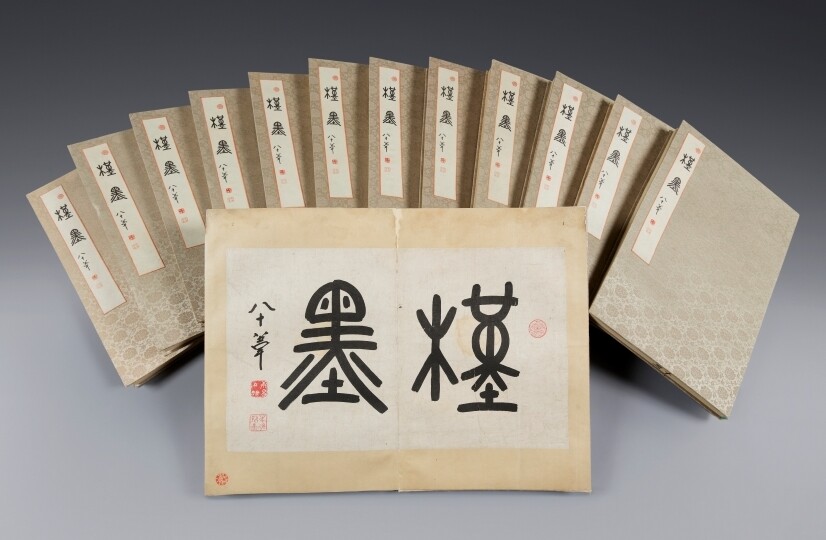 槿墨 八十葦
槿墨 八十葦
槿墨 八十葦
槿墨 八十葦
槿墨 八十葦
槿墨 八十葦
槿墨 八十葦
槿墨 八十葦
槿墨 八十葦
槿墨 八十葦
槿墨 八十葦
槿墨 八十葦
槿墨
八十葦